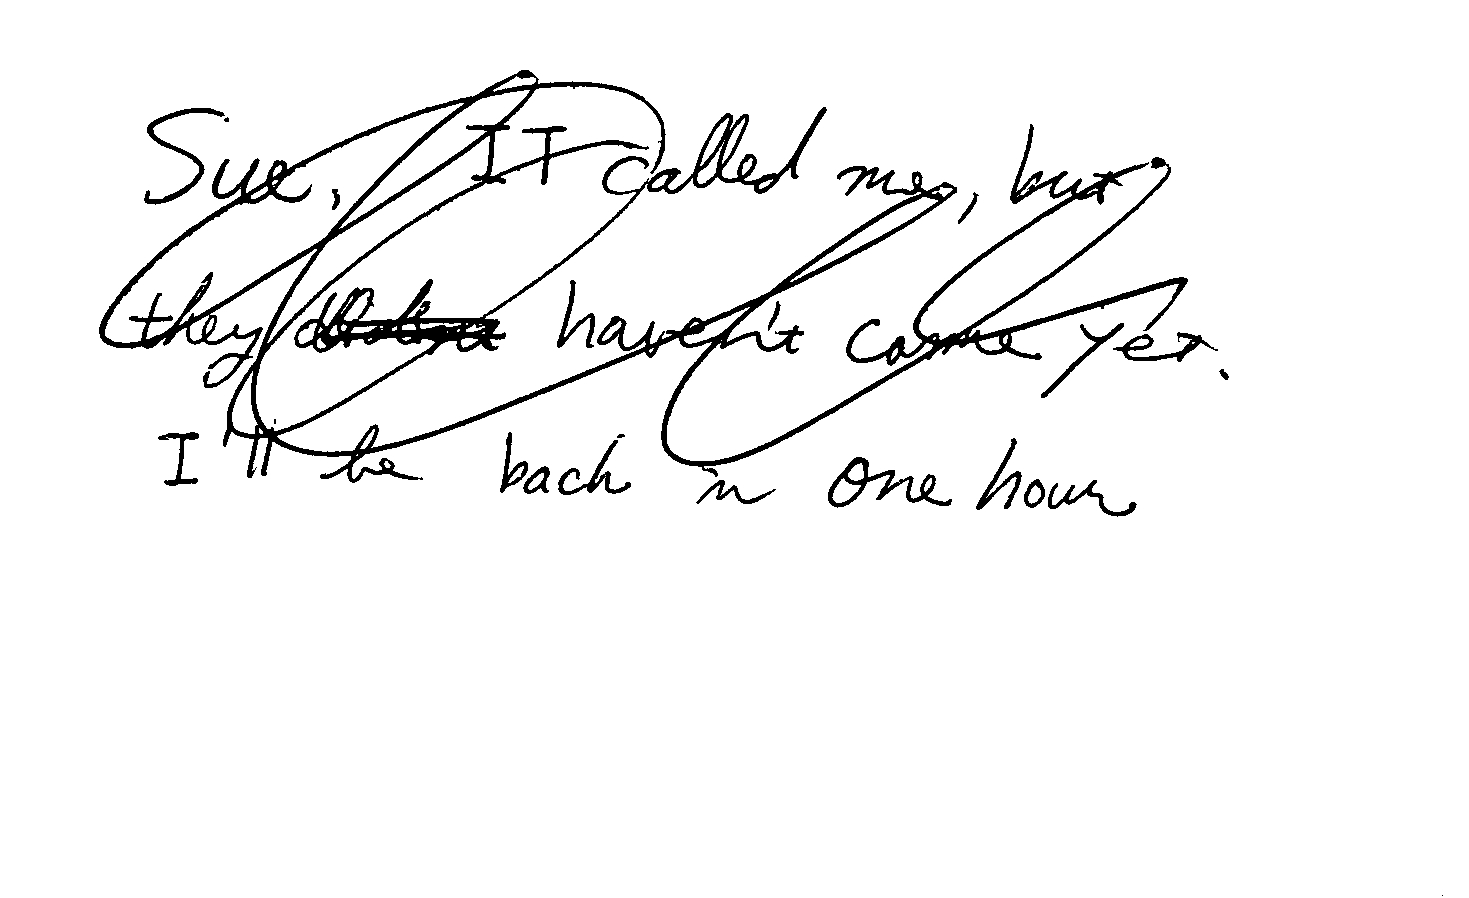 Sue, IT called me, but
they haven't come yet.
I'll be back in one hour